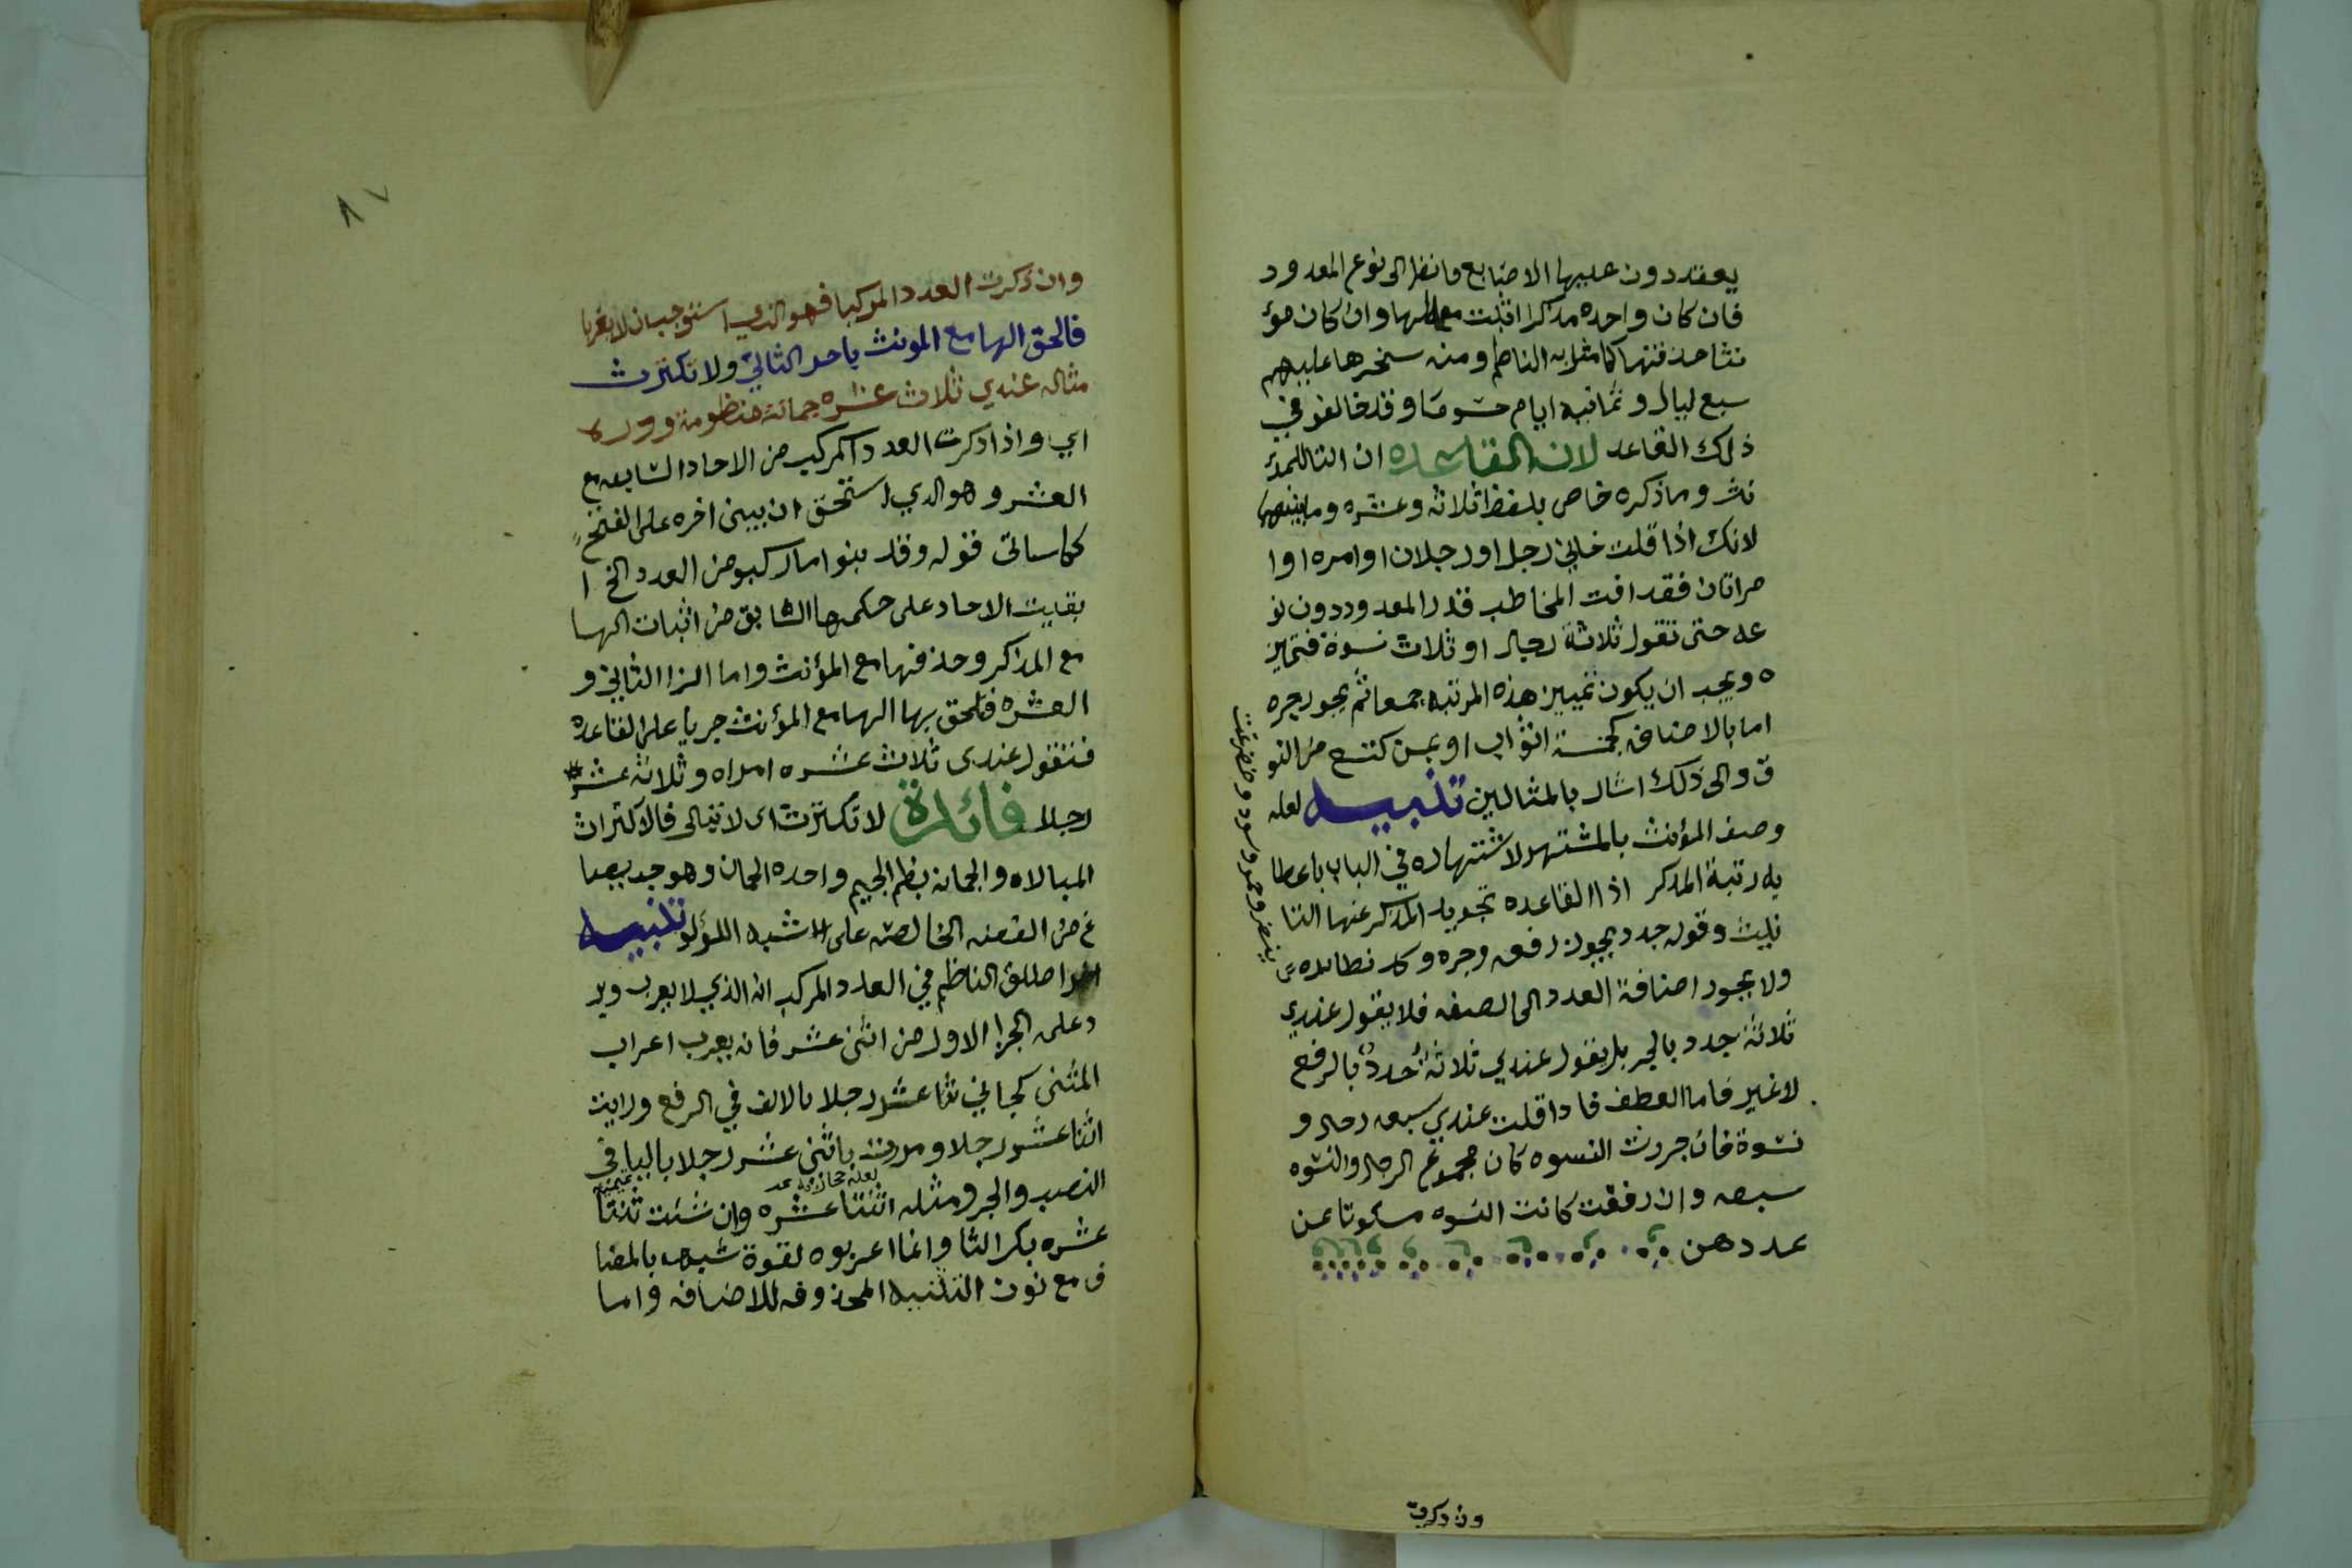 يعقدون عليها الاصابع فانظر الى نوع المعدود
فان كان واحده مذكرا اثبت معه الها وان كان مؤ
نثا حذفتها كما مثل به الناظم ومنه سخرها عليهم
سبع ليال وثمانيه ايام حسوما وقد خالفو في
ذلك القاعد لان القاعده ان التا للمؤ
نث وما ذكره خاص بلفظ ثلاثه وعشره وما بينهما
لانك اذا قلت جاني رجل او رجلان او امره او ا
مراتان فقد افت المخاطب قدر المعدود دون نو
عه حتى تقول ثلاثة رجال او ثلاث نسوة فتميز
ه ويجب ان يكون تمييز هذه المرتبه جمعا ثم يجوز جره
اما بالاضافه كخمسة اثواب او بمن كتسع من النو
ق والى ذلك اشار بالمثالين تنبيه لعله
وصف المؤنث بالمشتهر لاشتهاره في الباب باعطا
يه رتبة المذكر اذ القاعده تجريد المذكر عنها التا
نيث وقوله جدد يجوز رفعه وجره وكد نظايره
ولا يجوز اضافة العدد الى الصفه فلا يقول عندي
ثلاثة جدد بالجر بل يقول عندي ثلاثة جدد بالرفع
لا غير فاما العطف فاذا قلت عندي سبعه رجال و
نسوة فان جررت النسوه كان مجموع الرجال والنسوه
سبعه وان رفعت كانت النسوه مسكوتا عن
عددهن
وان ذكرت
٨٧
وان ذكرت العدد المركبا فهو الذي استوجب ان لا يعربا
فالحق الها مع المونث باحد الثاني ولا تكترث
مثاله عندي ثلاث عشره جمانة منظومة ودره
اي واذا ذكرت العدد المركب من الاحاد السابعه مع
العشر وهو الذي استحق ان يبنى اخره على الفتح
كما سياتي قوله وقد بنوا ما ركبو من العدد الخ ا
بقيت الاحاد على حكمها السابق من اثبات الها
مع المذكر وحذفها مع المؤنث واما الزا الثاني و
العشره فلحق بها الها مع المؤنث جريا على القاعده
فتقول عندى ثلاث عشره امراه وثلاثة عشر
رجلا فائدة لا تكترث اى لا تبالى فالاكتراث
المبالاه والجمانه بضم الجيم واحده الجمان وهو جد يصا
غ من الفضه الخالصه على شبه اللؤلو تنبيه
اطلق الناظم في العدد المركب انه الذي لا يعرب وير
د على الجزا الاول من اثنى عشر فانه يعرب اعراب
المثنى كجاني اثنا عشر رجلا بالالف في الرفع ورايت
اثنا عشر رجلا ومررت باثنى عشر رجلا باليا في
النصب والجر ومثله اثنتا عشره وان شئت ثنتا
عشره بكسر الثا وانما اعربوه لقوة شبهه بالمضا
ف مع نون التثنيه المحذوفه للاضافه واما